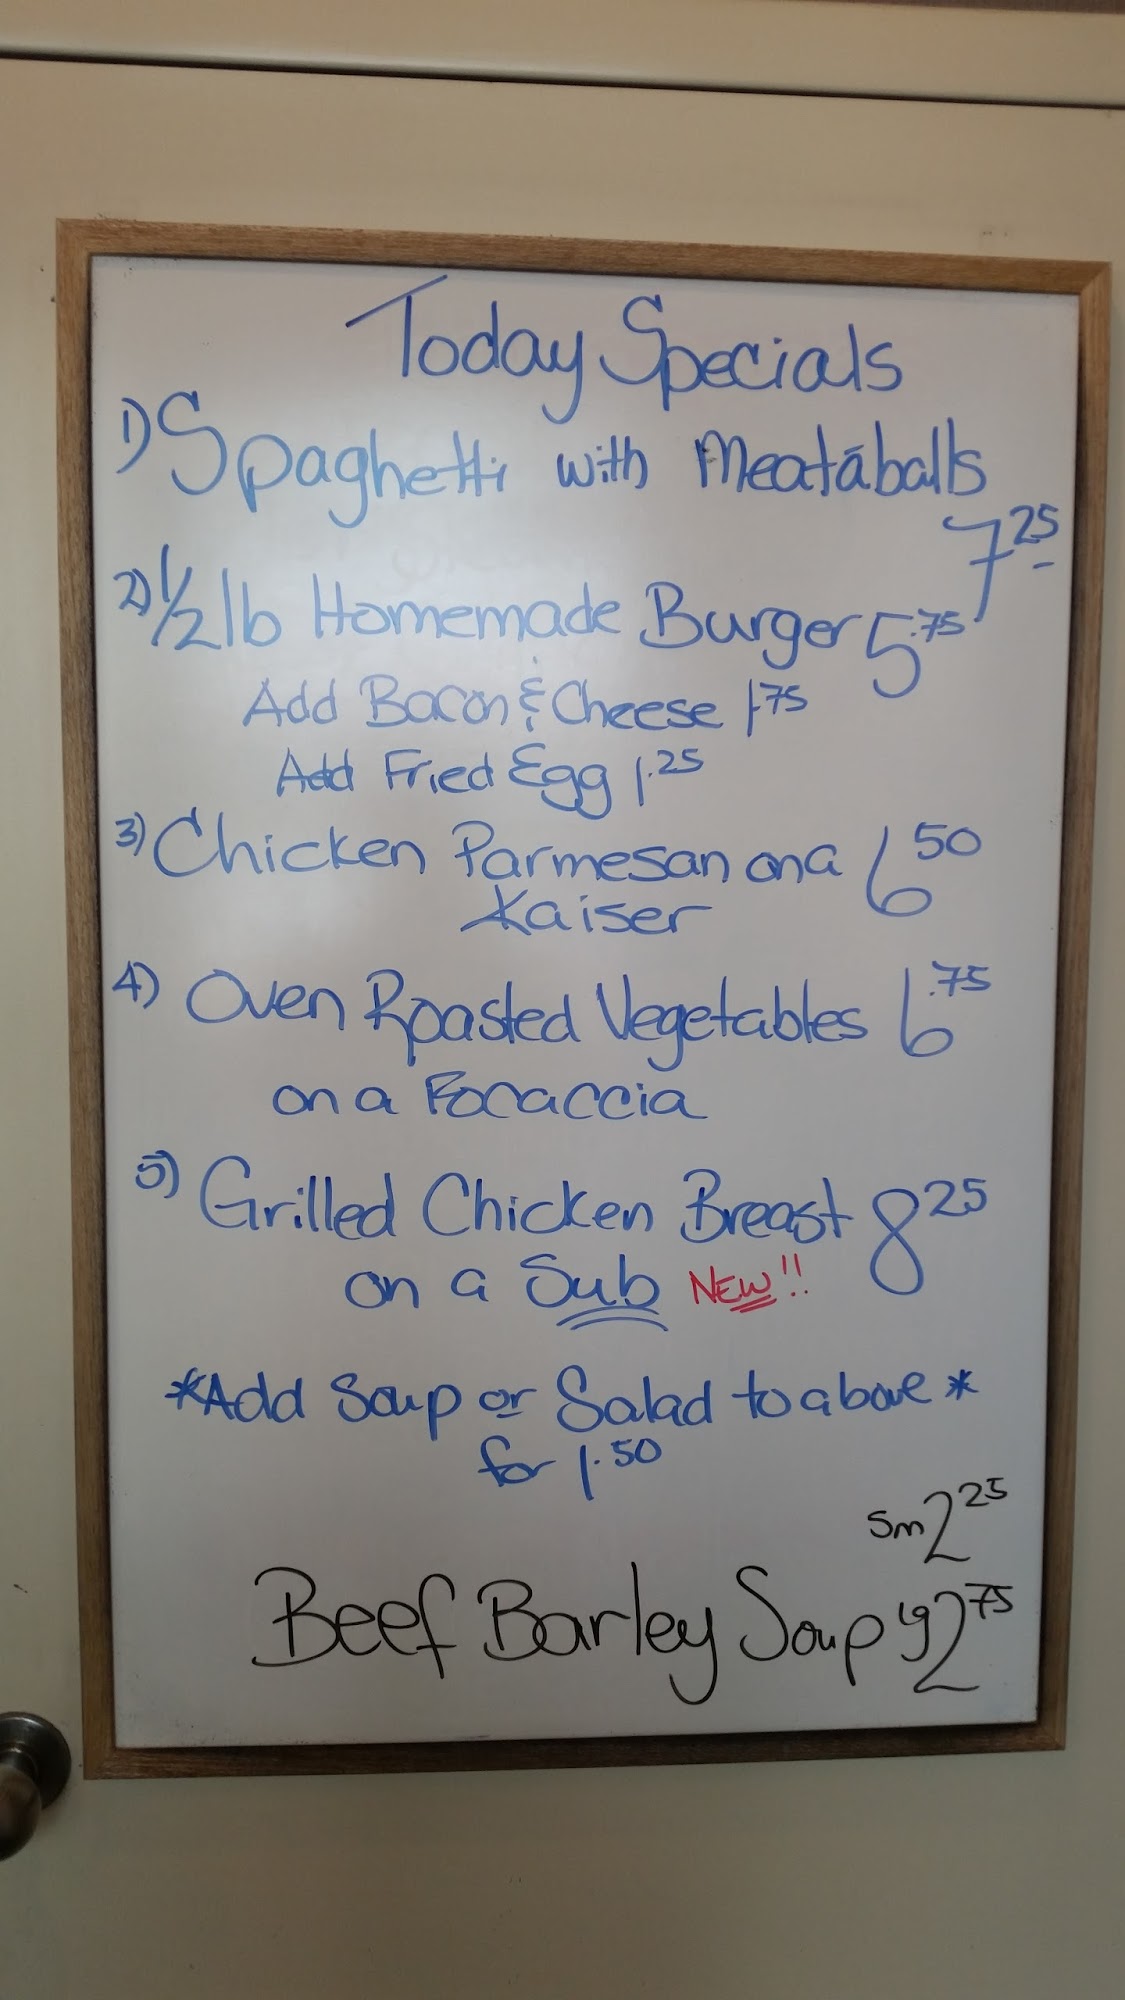 Today Specials
1) Spaghetti with Meatáballs
7 25
2) 1/2 lb Homemade Burger 5.75
Add Bacon & Cheese 1.75
Add Fried Egg 1.25
3) Chicken Parmesan on a 6 50
Kaiser
4) Oven Roasted Vegetables 6.75
on a Focaccia
5) Grilled Chicken Breast 8 25
on a Sub NEW!!
*Add Soup or Salad to above*
for 1.50
Sm 2 25
Beef Barley Soup lg 2 75